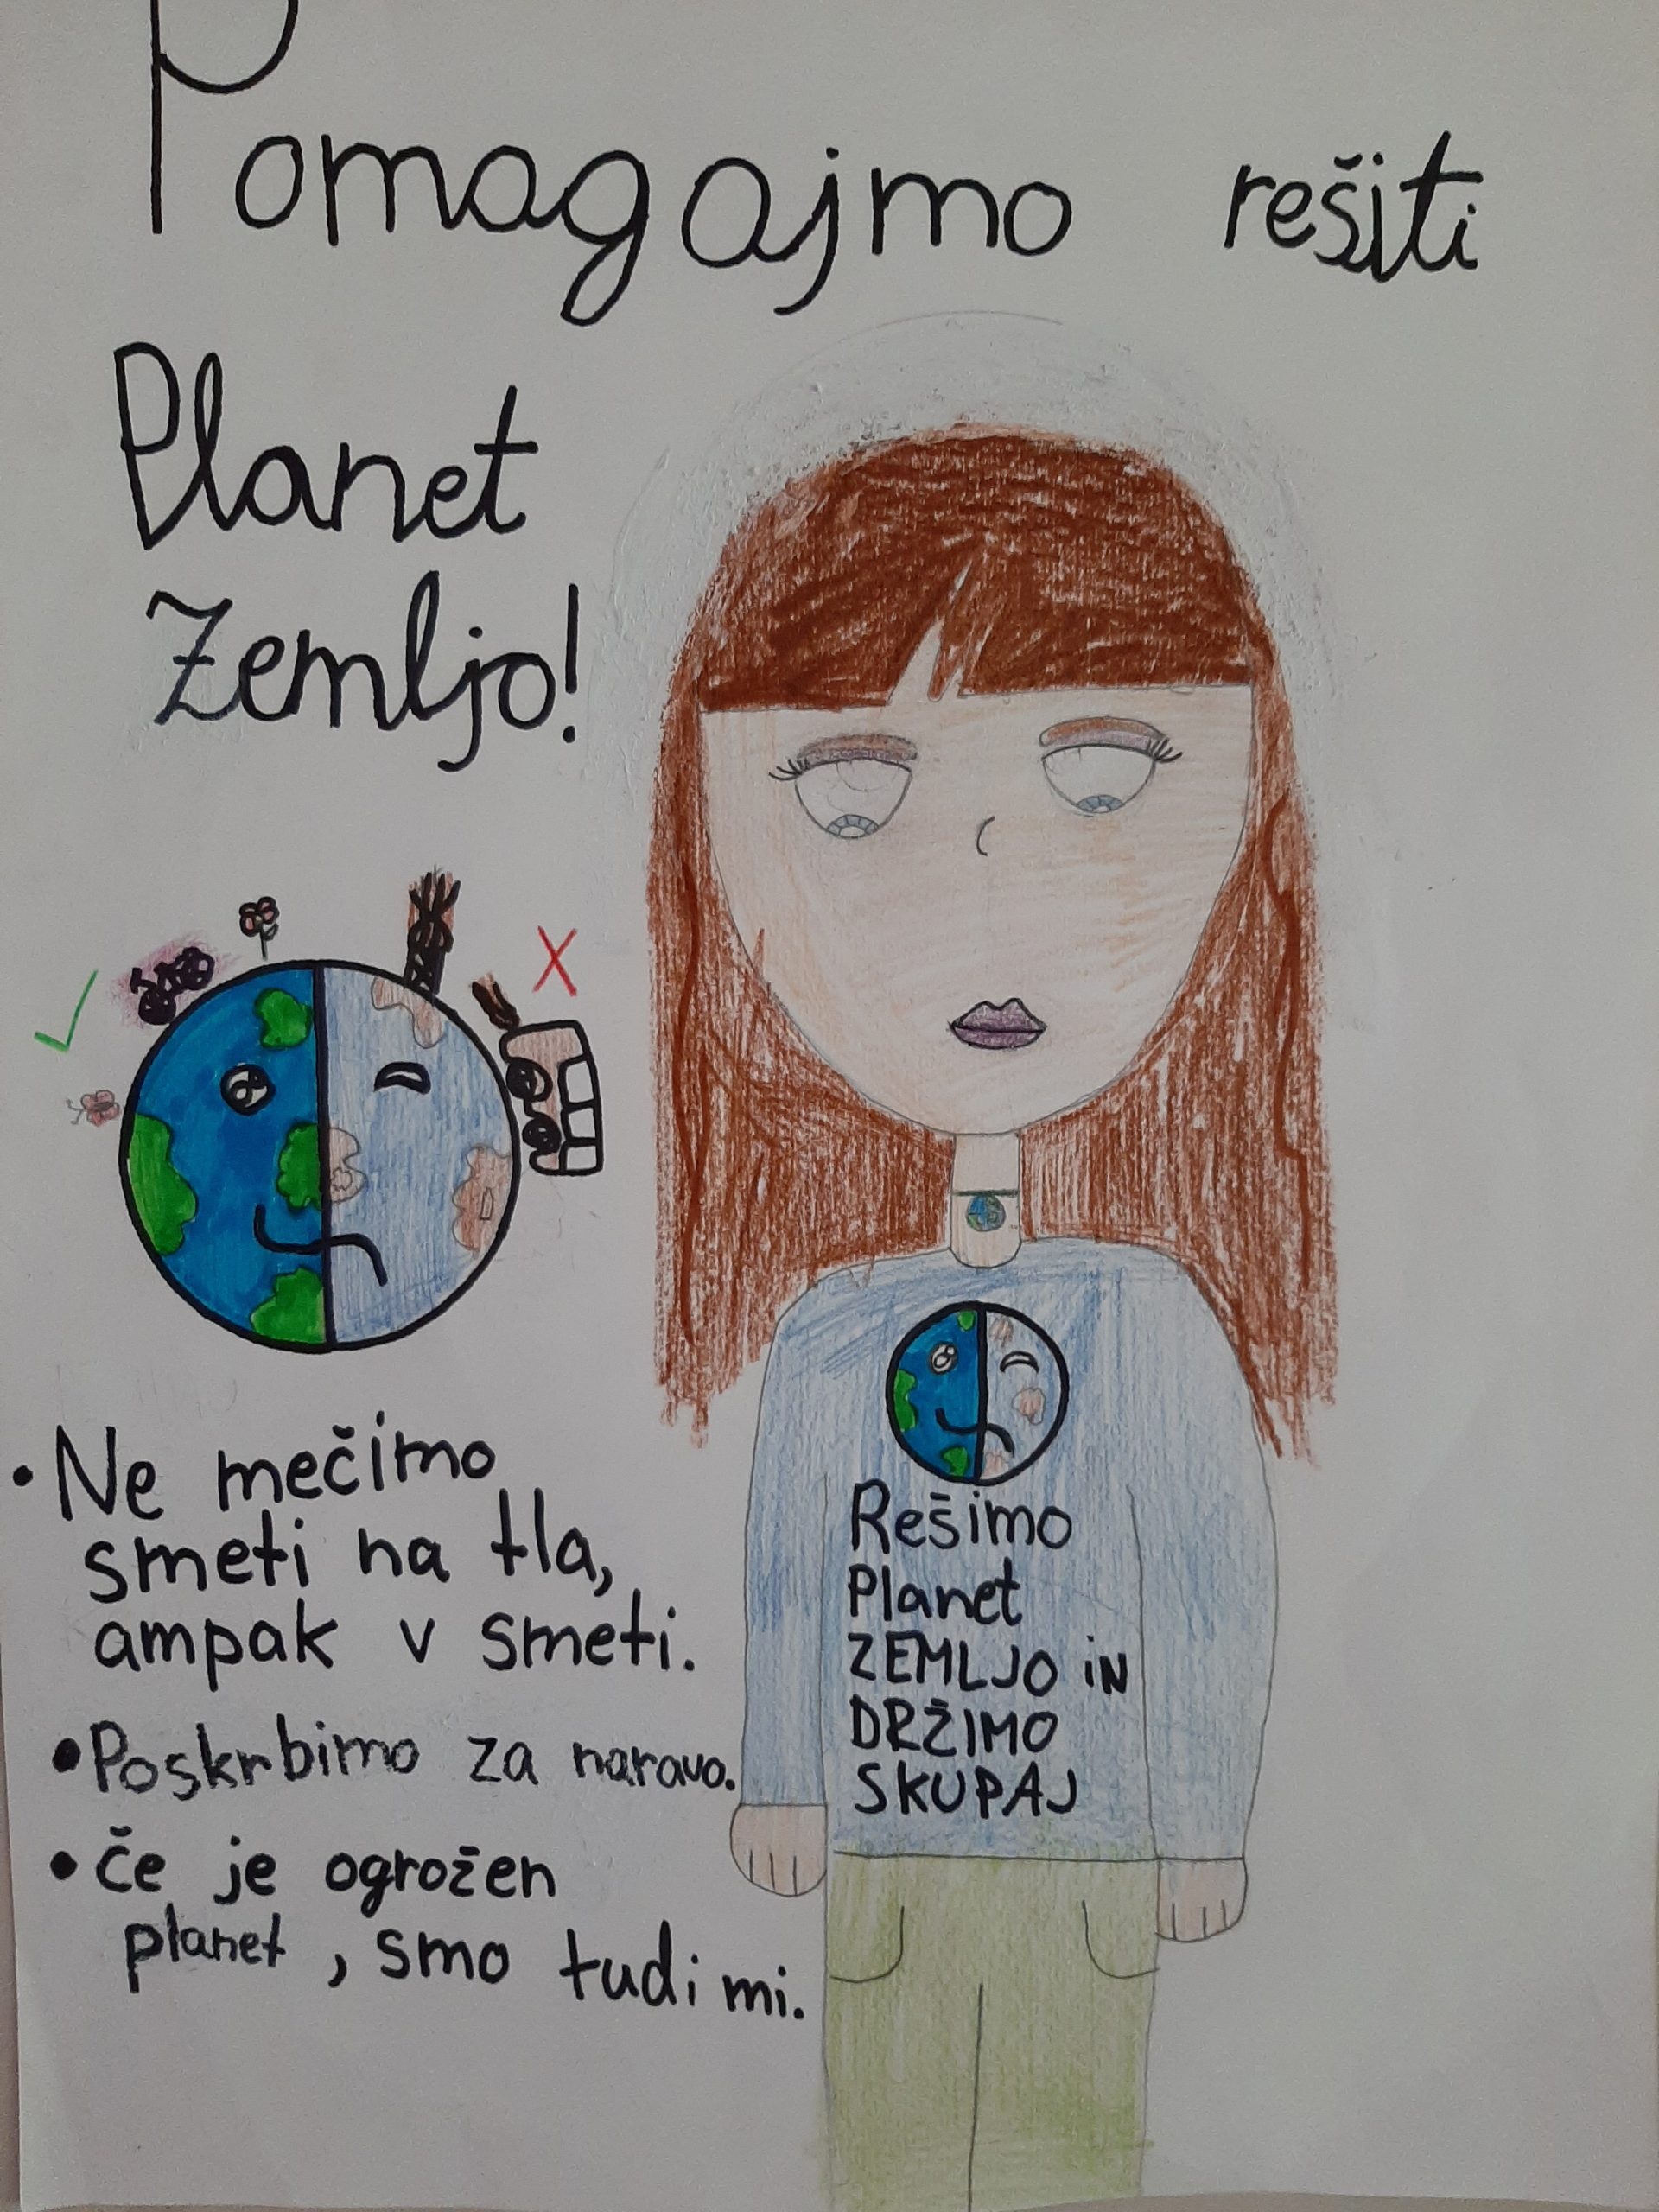 Pomagajmo rešiti
Planet
Zemljo!
• Ne mečimo
smeti na tla,
ampak v smeti.
• Poskrbimo za naravo.
• Če je ogrožen
planet, smo tudi mi.
Rešimo
Planet
ZEMLJO iN
DRŽIMO
SKUPAJ